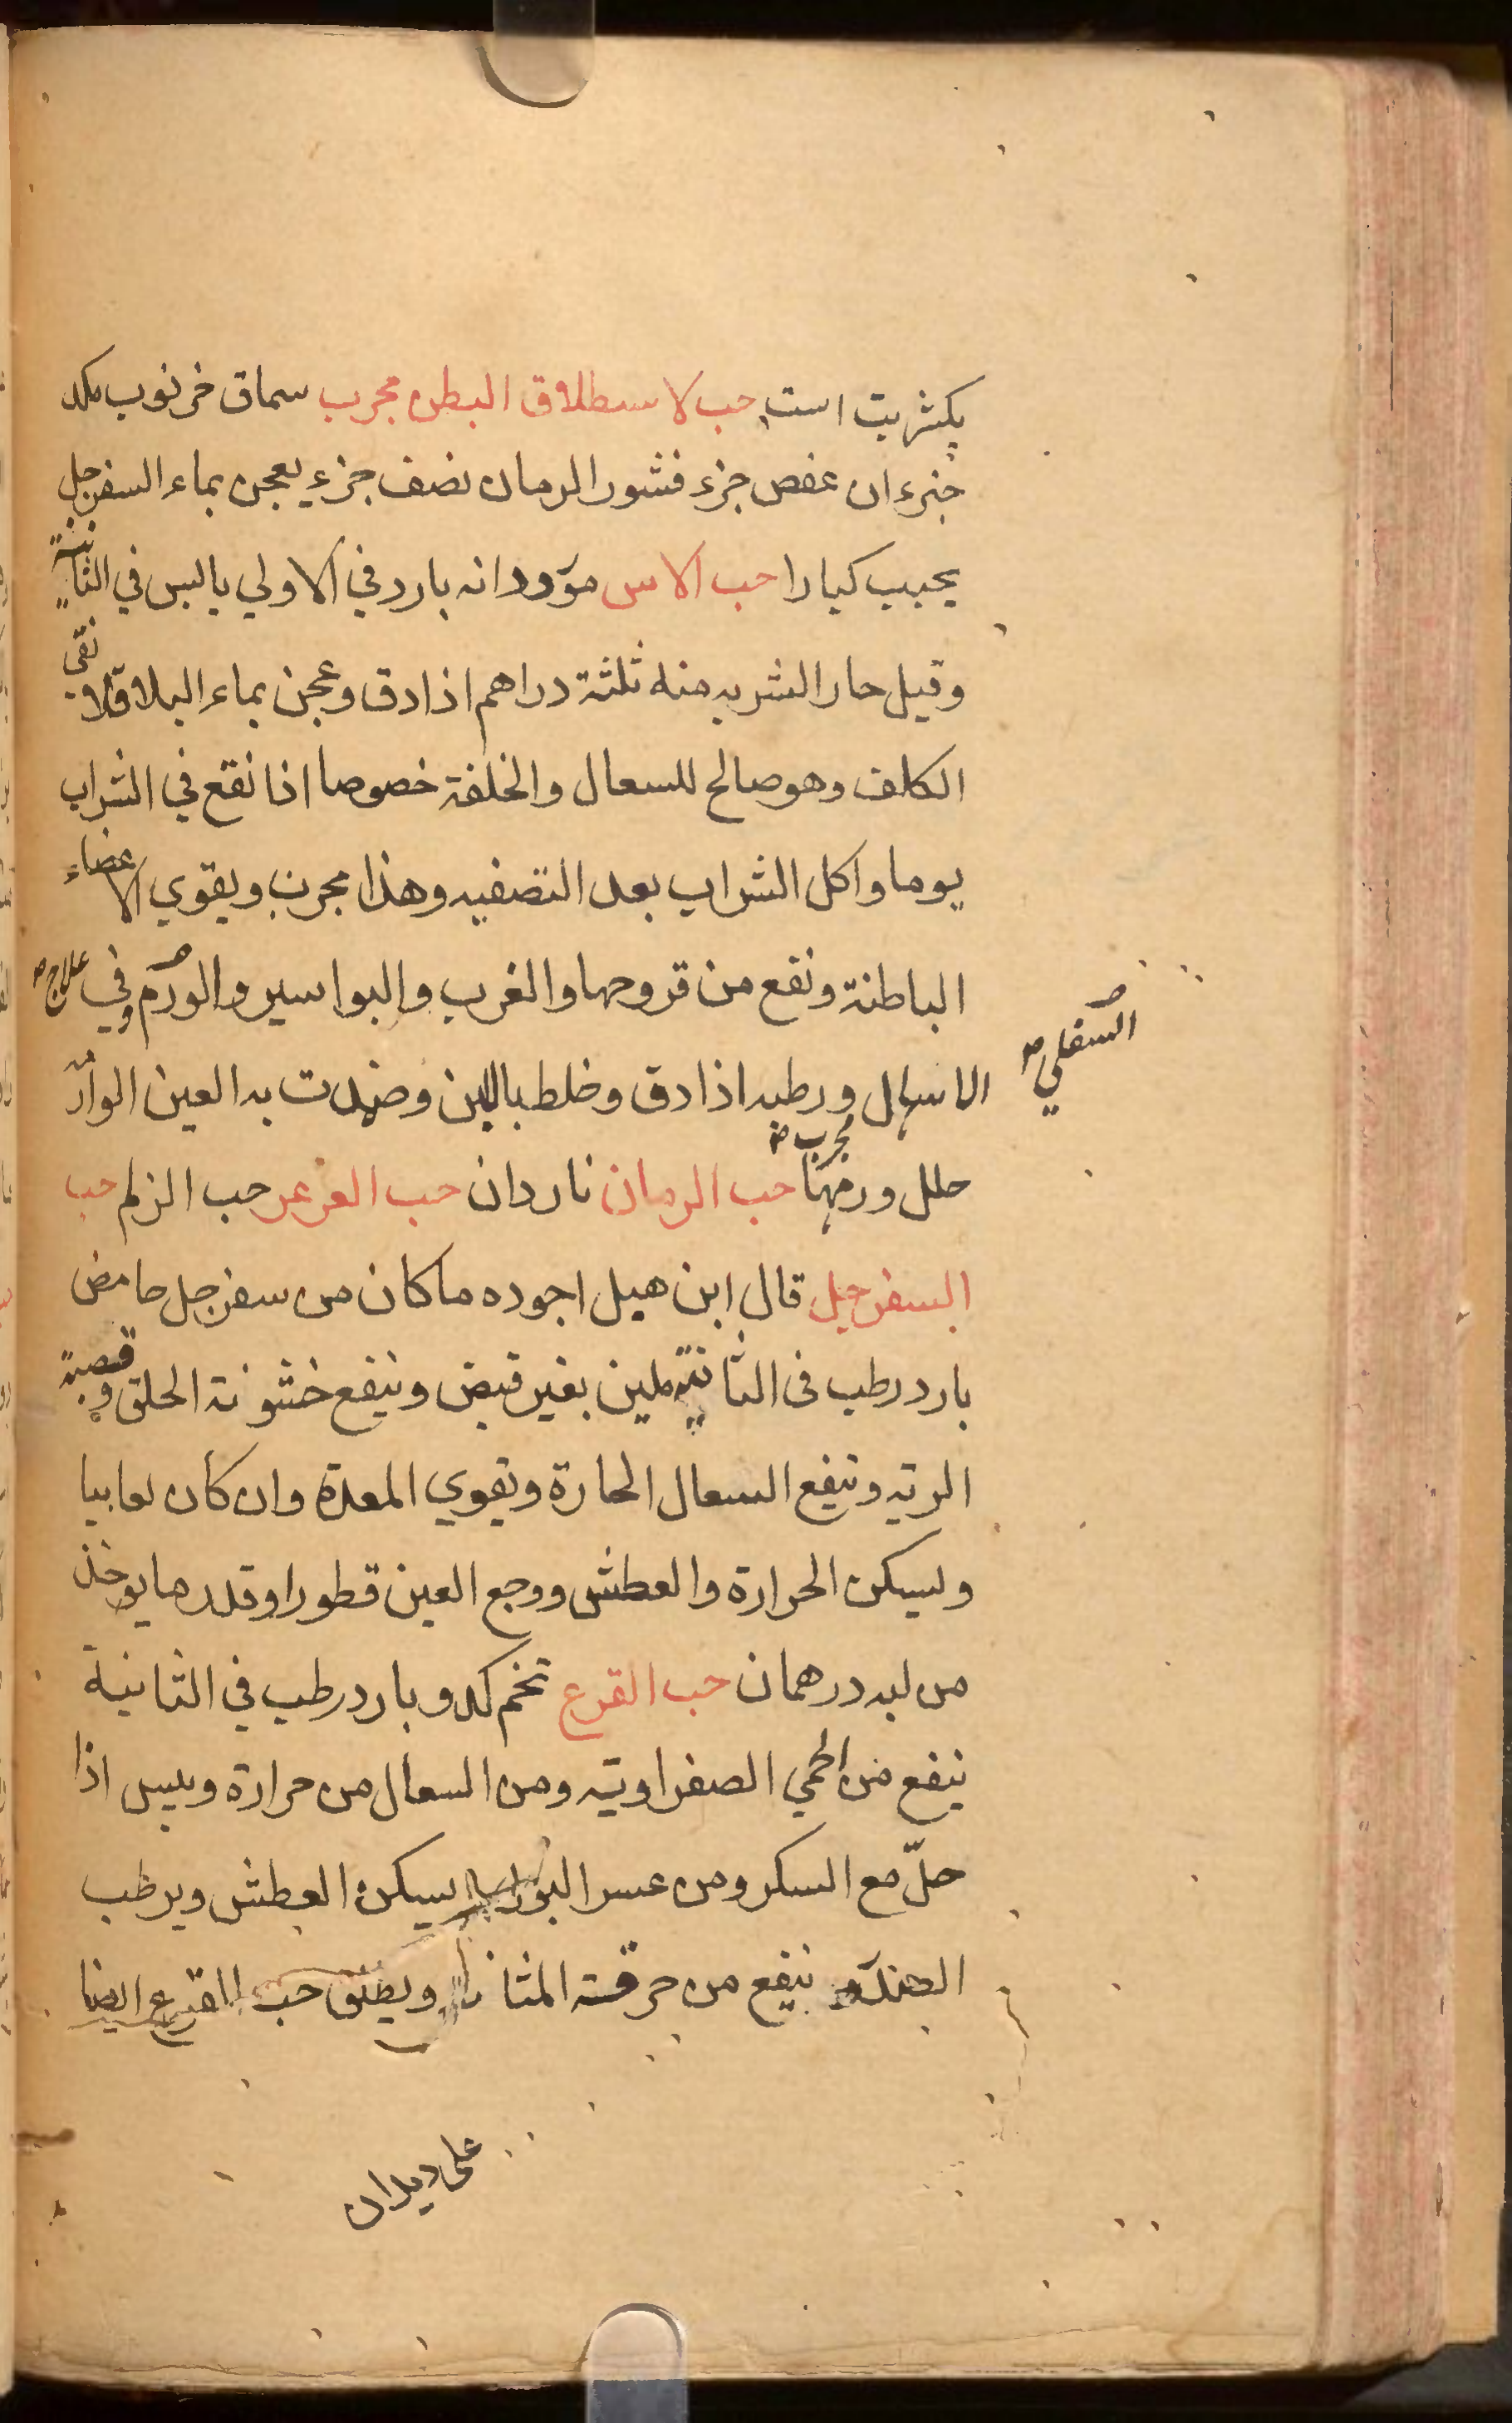 یکشربت است حب لاسطلاق البطن مجرب سماق خرنوب مکد
جزءان عفص جزء قشور الرمان نصف جزء يعجن بماء السفرجل
يحبب كبارا حب الاس مورد دانه بارد في الاولي يابس في الثانية
وقيل حار الشربه منه ثلثة دراهم اذا دق وعجن بماء الباقلا نقى
الكلف وهو صالح للسعال والخلفة خصوصا اذا نقع في الشراب
يوما واكل الشراب بعد التصفيه وهذا مجرب ويقوي الاعضاء
الباطنة ونفع من قروحها والغرب والبواسير والورم وفي علاج
السفلي
الاسهال ورطبه اذا دق وخلط باللبن وضمدت به العين الوارد
حلل ورمها مجرب حب الرمان ناردان حب العرعر حب الزلم حب
السفرجل قال ابن هبل اجوده ما كان من سفرجل حامض
بارد رطب فى الثانية ملين بغير قبض وينفع خشونة الحلق وقصبة
الريه وينفع السعال الحارة ويقوي المعدة وان كان لعابيا
ويسكن الحرارة والعطش ووجع العين قطورا وقدر ما يوخذ
من لبه درهمان حب القرع تخم كدو بارد رطب في الثانية
ينفع من الحمي الصفراويه ومن السعال من حرارة ويبس اذا
حلّ مع السكر ومن عسر البول يسكن العطش ويرطب
الصدر ينفع من حرقة المثانة ويطلق حب القرع ايضا
على ديدان